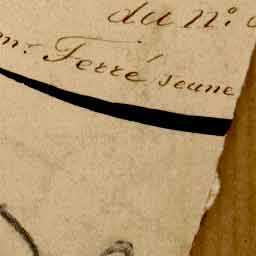 du n.º
m.r Ferré jeune